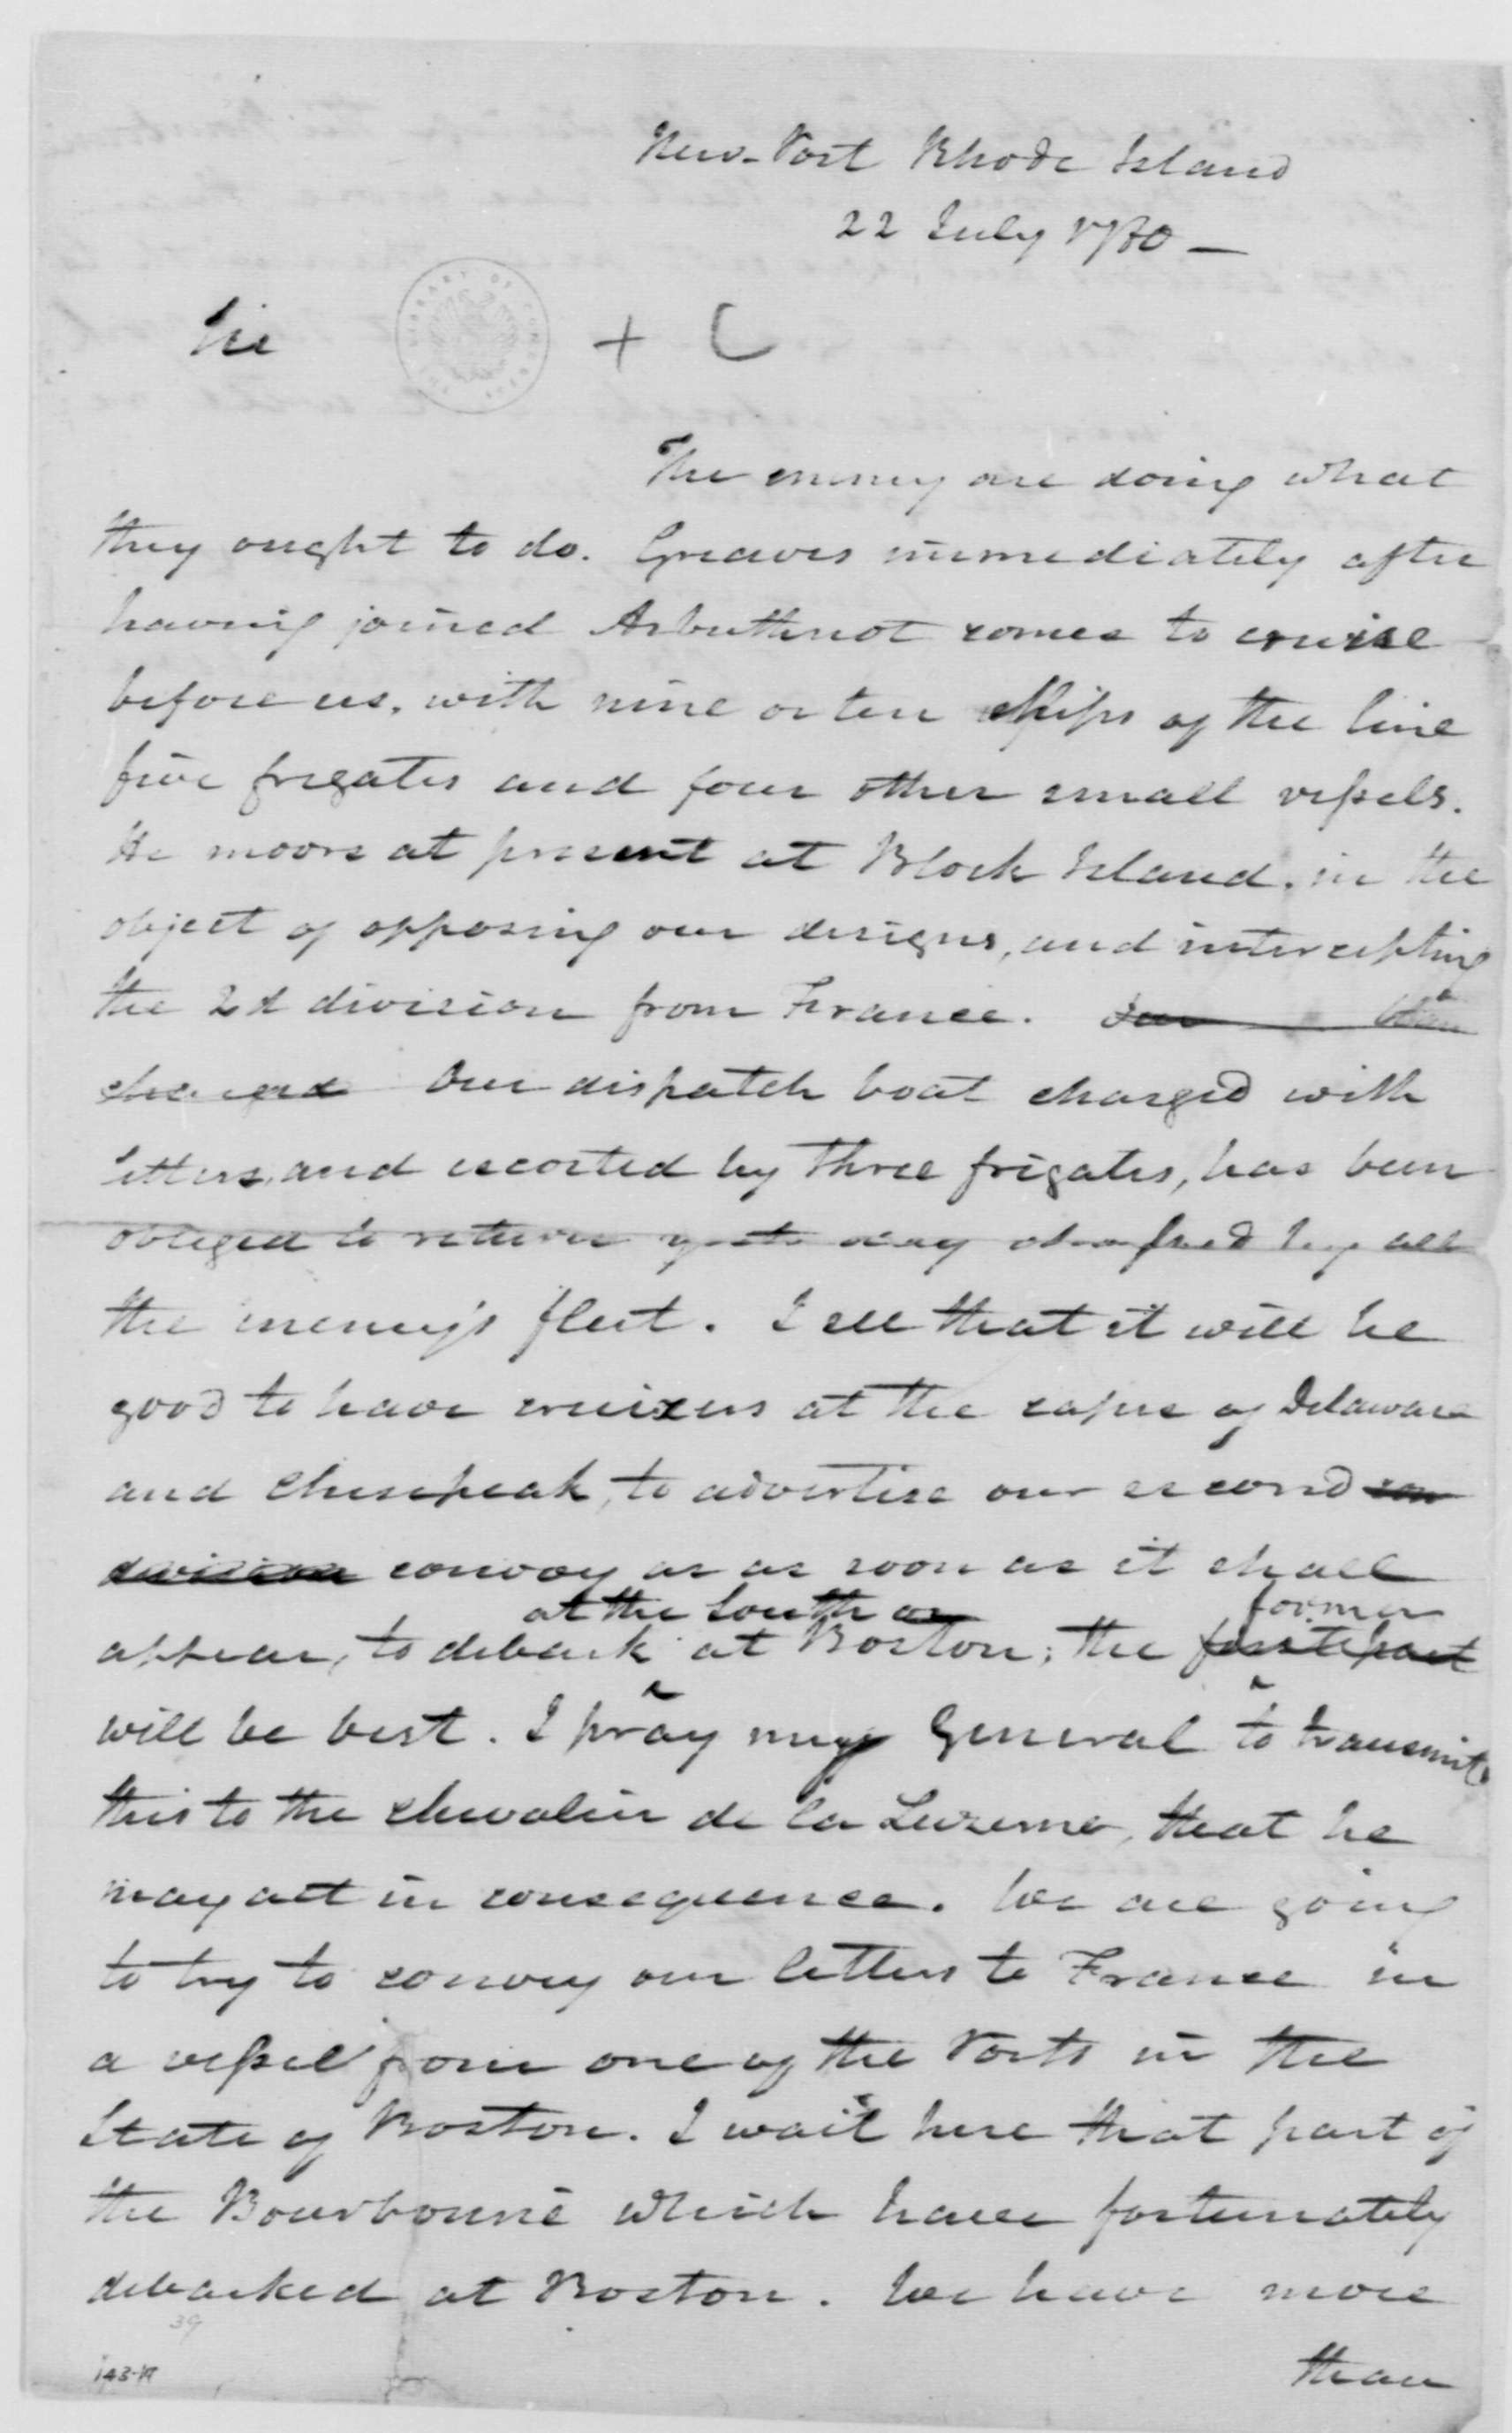 New-Port Rhode Island
22 July 1780 —
Sir
+ C
The enemy are doing what
they ought to do. Greaves immediately after
having joined Arbuthnot comes to cruise
before us, with nine or ten ships of the line
five frigates and four other small vessels.
He moors at present at Block Island, in the
object of opposing our designs, and intercepting
the 2d division from France.
Our dispatch boat charged with
letters, and escorted by three frigates, has been
obliged to return yesterday chased by all
the enemy's fleet. I see that it will be
good to have cruizers at the capes of Delaware
and Chesepeak, to advertise our second
division convoy as as soon as it shall
at the South or former
appear, to debark at Boston; the first part
will be best. I pray my General to transmit
this to the chevalier de la Luzerne, that he
may act in consequence. We are going
to try to convey our letters to France in
a vessel from one of the Ports in the
State of Boston. I wait here that part of
the Bourbonné which have fortunately
debarked at Boston. We have more
than
39
143-19